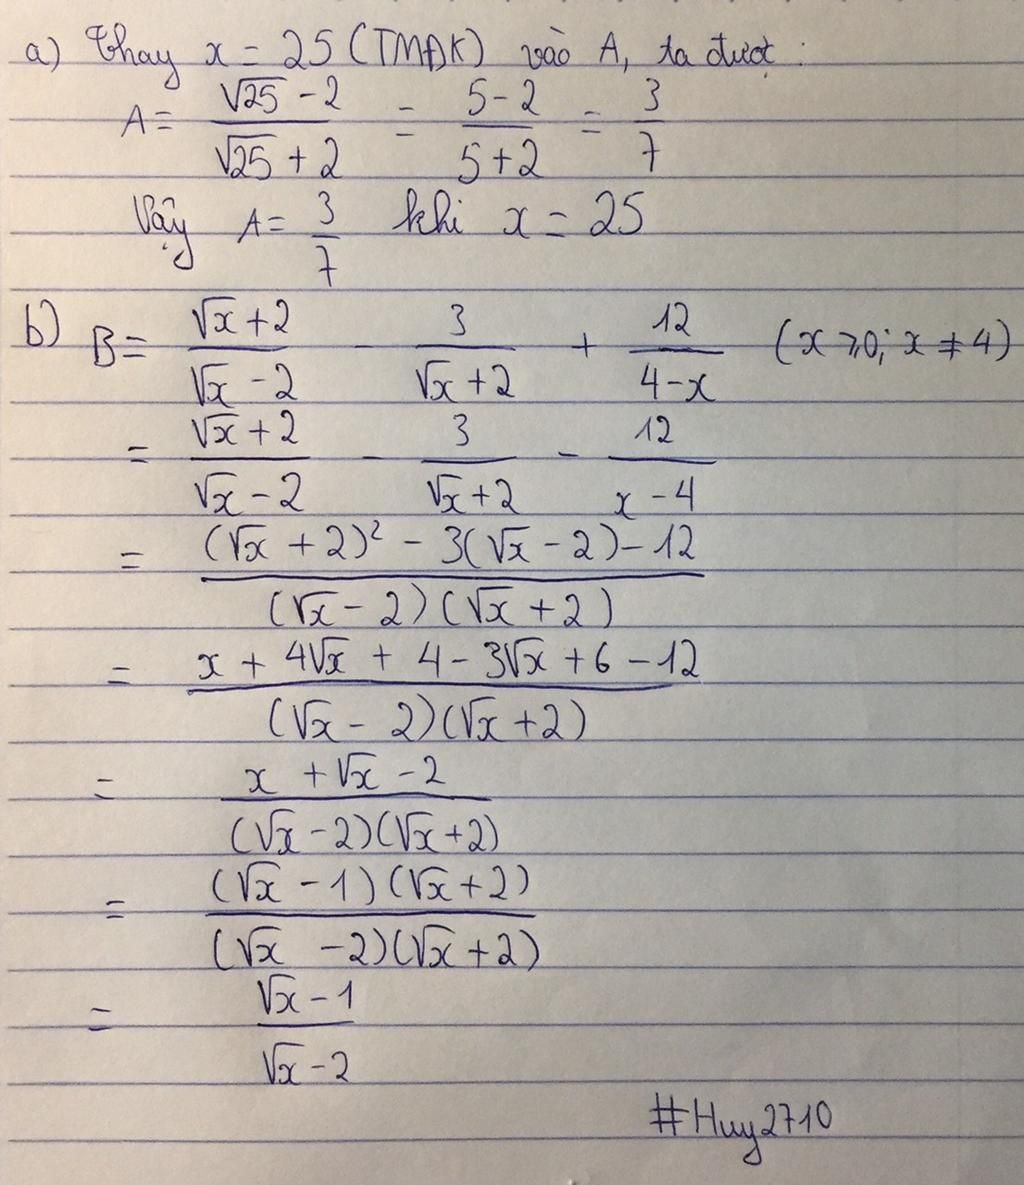 a) Thay x = 25 (TMĐK) vào A, ta được:
A = (√25 - 2)/(√25 + 2) = (5 - 2)/(5 + 2) = 3/7
Vậy A = 3/7 khi x = 25
b) B = (√x + 2)/(√x - 2) - 3/(√x + 2) + 12/(4 - x) (x ⩾ 0; x ≠ 4)
= (√x + 2)/(√x - 2) - 3/(√x + 2) - 12/(x - 4)
= ((√x + 2)² - 3(√x - 2) - 12)/((√x - 2)(√x + 2))
= (x + 4√x + 4 - 3√x + 6 - 12)/((√x - 2)(√x + 2))
= (x + √x - 2)/((√x - 2)(√x + 2))
= ((√x - 1)(√x + 2))/((√x - 2)(√x + 2))
= (√x - 1)/(√x - 2)
#Huy2710